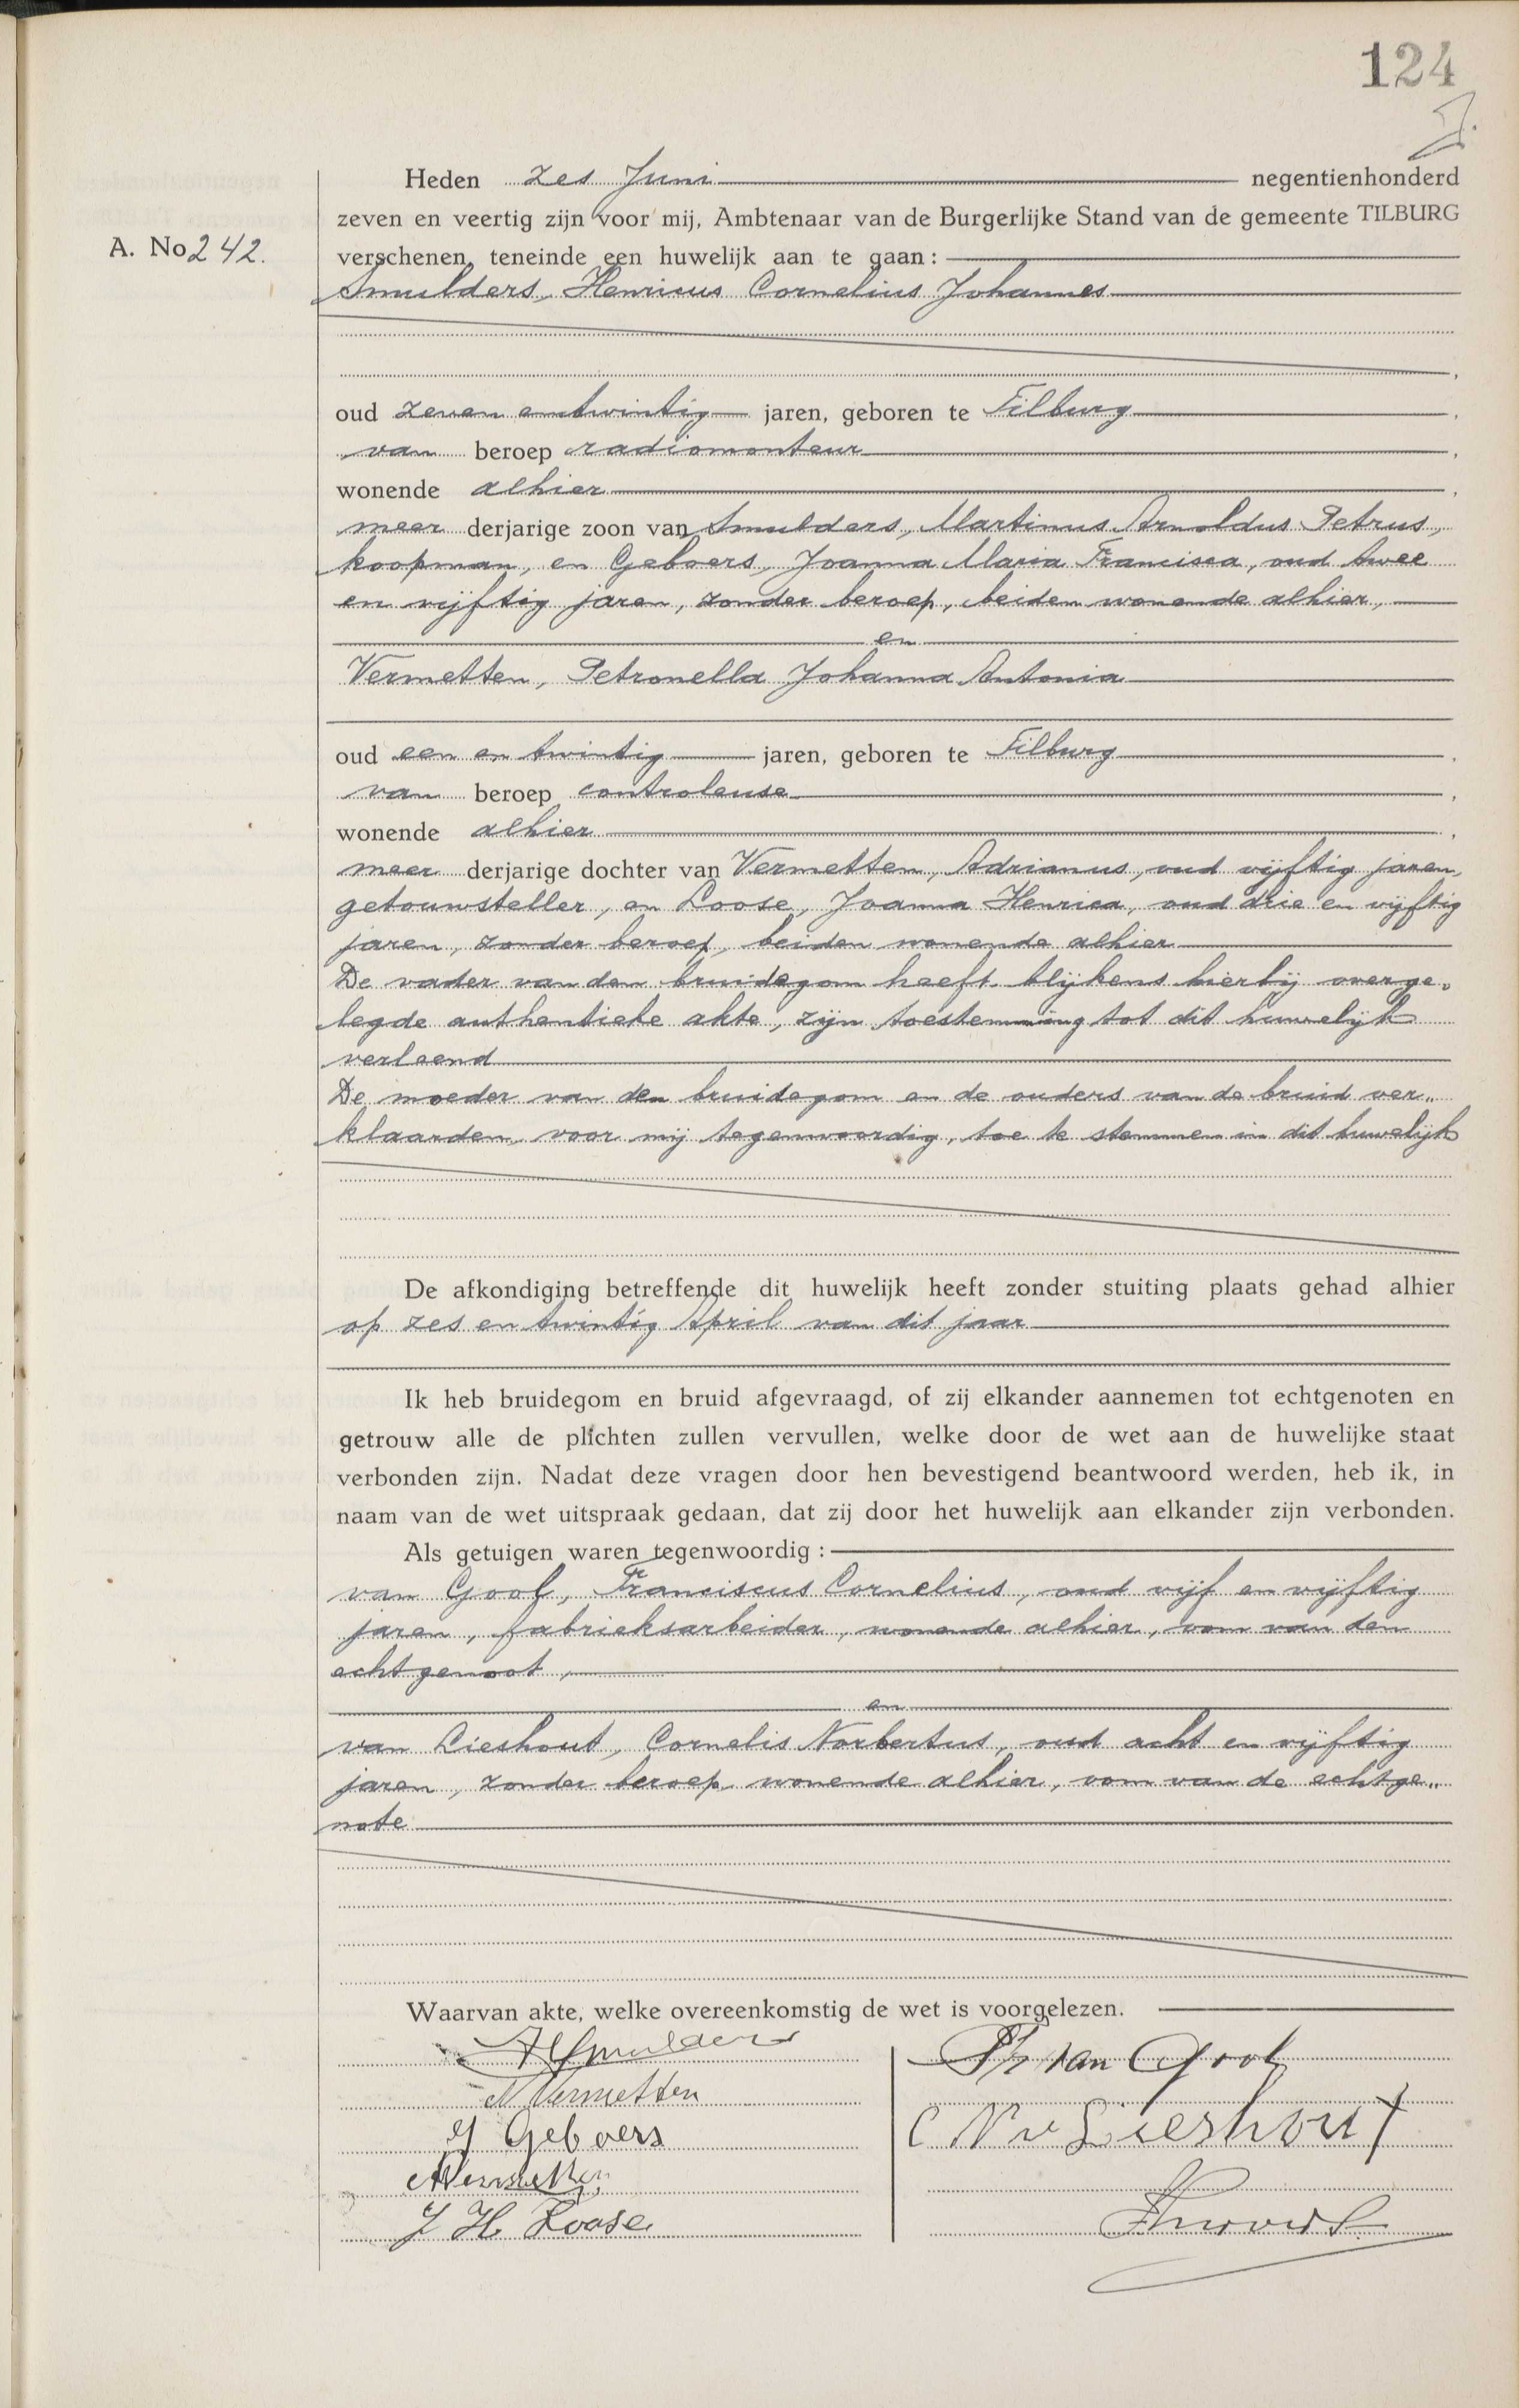 124
Heden zes Juni negentienhonderd
zeven en veertig zijn voor mij, Ambtenaar van de Burgerlijke Stand van de gemeente TILBURG
A. No 242.
verschenen, teneinde een huwelijk aan te gaan:
Smulders, Henricus Cornelius Johannes
oud zeven entwintig jaren, geboren te Tilburg,
van beroep radiomonteur,
wonende alhier,
meer derjarige zoon van Smulders, Martinus Arnoldus Petrus,
koopman, en Geboers, Joanna Maria Francisca, oud twee
en vijftig jaren, zonder beroep, beiden wonende alhier,
en
Vermetten, Petronella Johanna Antonia
oud een en twintig jaren, geboren te Tilburg,
van beroep controleuse,
wonende alhier,
meer derjarige dochter van Vermetten, Adrianus, oud vijftig jaren,
getouwsteller, en Loose, Joanna Henrica, oud drie en vijftig
jaren, zonder beroep, beiden wonende alhier
De vader van den bruidegom heeft blijkens hierbij overge-
legde authentieke akte, zijn toestemming tot dit huwelijk
verleend
De moeder van den bruidegom en de ouders van de bruid ver-
klaarden, voor mij tegenwoordig, toe te stemmen in dit huwelijk
De afkondiging betreffende dit huwelijk heeft zonder stuiting plaats gehad alhier
op zes en twintig April van dit jaar
Ik heb bruidegom en bruid afgevraagd, of zij elkander aannemen tot echtgenoten en
getrouw alle de plichten zullen vervullen, welke door de wet aan de huwelijke staat
verbonden zijn. Nadat deze vragen door hen bevestigend beantwoord werden, heb ik, in
naam van de wet uitspraak gedaan, dat zij door het huwelijk aan elkander zijn verbonden.
Als getuigen waren tegenwoordig:
van Gool, Franciscus Cornelius, oud vijf en vijftig
jaren, fabrieksarbeider, wonende alhier, oom van den
echtgenoot,
en
van Lieshout, Cornelis Norbertus, oud acht en vijftig
jaren, zonder beroep, wonende alhier, oom van de echtge-
note
Waarvan akte, welke overeenkomstig de wet is voorgelezen.
HSmulders
N Vermetten
J Geboers
A Vermetten
J H Loose
Fr van Gool
C N v Lieshout